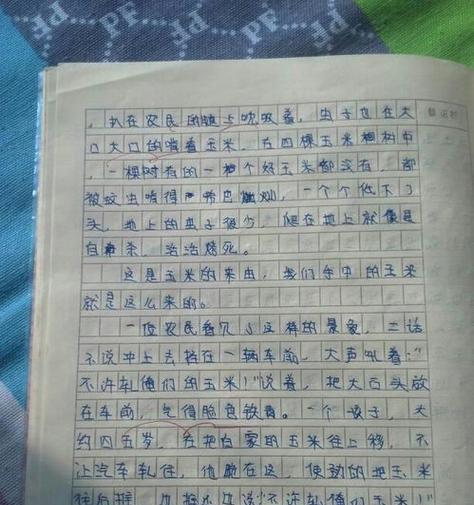 PF PF PF
，趴在农民的腿上吮吸着，虫子也在大
口大口的啃着玉米。在四棵玉米树中
，一棵树有的一个好玉米都没有，都
被蚊虫啃得稀巴烂，一个个低下了
头，地上的虫子很少，爬在地上就像是
自杀，活活烤死。
这是玉米的来由，我们手中的玉米
就是这么来的。
一位农民看见了这样的景象，二话
不说冲上去挡在一辆车前，大声吼着：“
不许轧俺们的玉米！”说着，把大石头放
在车前，气得脸色铁青。一个孩子，大
约四五岁，在把自家的玉米往上移，不
让汽车轧住，他蹲在这，使劲的把玉米
往后推，边推边说：“不许轧俺们玉米！”